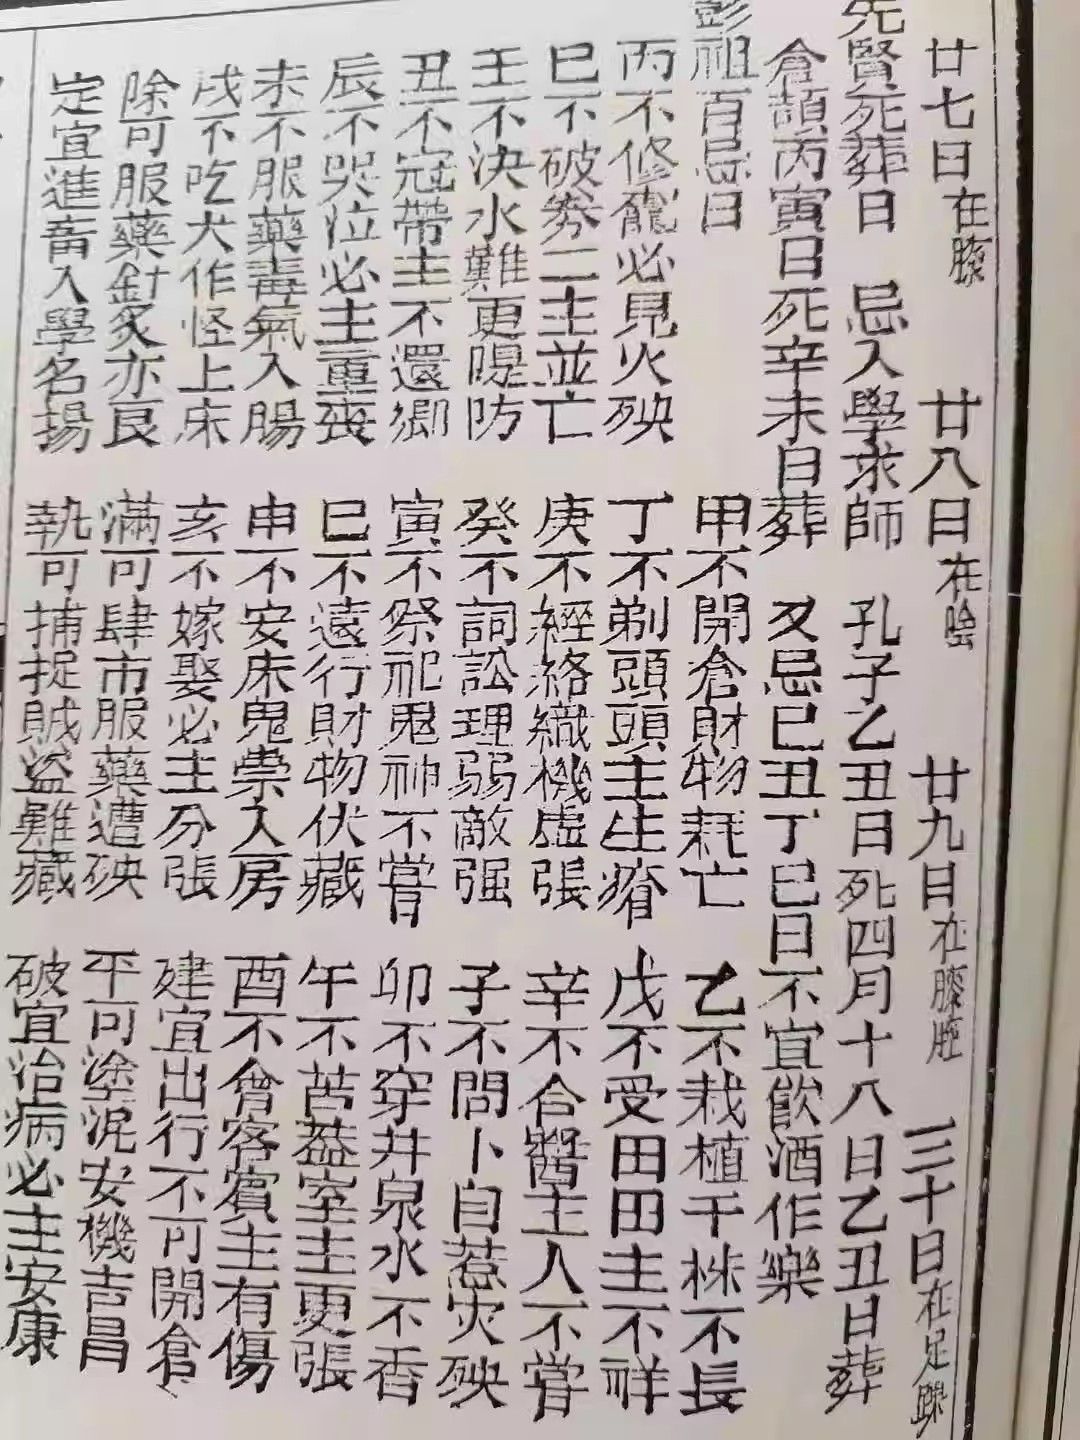 廿七日在膝 廿八日在陰 廿九日在膝脛 三十日在足躁
先賢死葬日 忌入學求師 孔子乙丑日死四月十八日乙丑日葬
倉頡丙寅日死辛未日葬 又忌巳丑丁巳日不宜飲酒作樂
彭祖百忌日 甲不開倉財物耗亡 乙不栽植千株不長
丙不修竈必見火殃 丁不剃頭頭主生瘡 戊不受田田主不祥
巳不破券二主並亡 庚不經絡織機虛張 辛不合醬主人不嘗
壬不決水難更隄防 癸不詞訟理弱敵强 子不問卜自惹灾殃
丑不冠帶主不還鄉 寅不祭祀鬼神不嘗 卯不穿井泉水不香
辰不哭泣必主重喪 巳不遠行財物伏藏 午不苫葢室主更張
未不服藥毒氣入腸 申不安床鬼祟入房 酉不會客賓主有傷
戌不吃犬作怪上床 亥不嫁娶必主分張 建宜出行不可開倉
除可服藥針炙亦良 滿可肆市服藥遭殃 平可塗泥安機吉昌
定宜進畜入學名揚 執可捕捉賊盜難藏 破宜治病必主安康